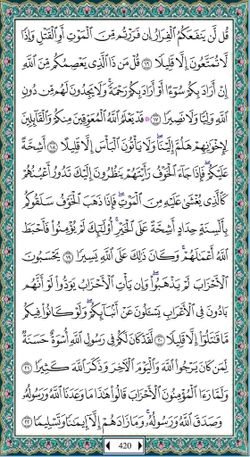 قُل لَّن يَنفَعَكُمُ ٱلْفِرَارُ إِن فَرَرْتُم مِّنَ ٱلْمَوْتِ أَوِ ٱلْقَتْلِ وَإِذًا
لَّا تُمَتَّعُونَ إِلَّا قَلِيلًا ١٦ قُلْ مَن ذَا ٱلَّذِى يَعْصِمُكُم مِّنَ ٱللَّهِ
إِنْ أَرَادَ بِكُمْ سُوٓءًا أَوْ أَرَادَ بِكُمْ رَحْمَةً ۚ وَلَا يَجِدُونَ لَهُم مِّن دُونِ
ٱللَّهِ وَلِيًّا وَلَا نَصِيرًا ١٧ قَدْ يَعْلَمُ ٱللَّهُ ٱلْمُعَوِّقِينَ مِنكُمْ وَٱلْقَآئِلِينَ
لِإِخْوَٰنِهِمْ هَلُمَّ إِلَيْنَا ۖ وَلَا يَأْتُونَ ٱلْبَأْسَ إِلَّا قَلِيلًا ١٨ أَشِحَّةً
عَلَيْكُمْ ۖ فَإِذَا جَآءَ ٱلْخَوْفُ رَأَيْتَهُمْ يَنظُرُونَ إِلَيْكَ تَدُورُ أَعْيُنُهُمْ
كَٱلَّذِى يُغْشَىٰ عَلَيْهِ مِنَ ٱلْمَوْتِ ۖ فَإِذَا ذَهَبَ ٱلْخَوْفُ سَلَقُوكُم
بِأَلْسِنَةٍ حِدَادٍ أَشِحَّةً عَلَى ٱلْخَيْرِ ۚ أُو۟لَـٰٓئِكَ لَمْ يُؤْمِنُوا۟ فَأَحْبَطَ
ٱللَّهُ أَعْمَـٰلَهُمْ ۚ وَكَانَ ذَٰلِكَ عَلَى ٱللَّهِ يَسِيرًا ١٩ يَحْسَبُونَ
ٱلْأَحْزَابَ لَمْ يَذْهَبُوا۟ ۖ وَإِن يَأْتِ ٱلْأَحْزَابُ يَوَدُّوا۟ لَوْ أَنَّهُم
بَادُونَ فِى ٱلْأَعْرَابِ يَسْـَٔلُونَ عَنْ أَنۢبَآئِكُمْ ۖ وَلَوْ كَانُوا۟ فِيكُم
مَّا قَـٰتَلُوٓا۟ إِلَّا قَلِيلًا ٢٠ لَّقَدْ كَانَ لَكُمْ فِى رَسُولِ ٱللَّهِ أُسْوَةٌ حَسَنَةٌ
لِّمَن كَانَ يَرْجُوا۟ ٱللَّهَ وَٱلْيَوْمَ ٱلْـَٔاخِرَ وَذَكَرَ ٱللَّهَ كَثِيرًا ٢١
وَلَمَّا رَءَا ٱلْمُؤْمِنُونَ ٱلْأَحْزَابَ قَالُوا۟ هَـٰذَا مَا وَعَدَنَا ٱللَّهُ وَرَسُولُهُۥ
وَصَدَقَ ٱللَّهُ وَرَسُولُهُۥ ۚ وَمَا زَادَهُمْ إِلَّآ إِيمَـٰنًا وَتَسْلِيمًا ٢٢
420